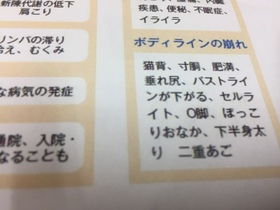 新陳代謝の低下
肩こり
リンパの滞り
冷え、むくみ
な病気の発症
通院、入院・
なることも
疾患、便秘、不眠症、
イライラ
ボディラインの崩れ
猫背、寸胴、肥満、
垂れ尻、バストライ
ンが下がる、セルラ
イト、O脚、ぽっこ
りおなか、下半身太
り 二重あご